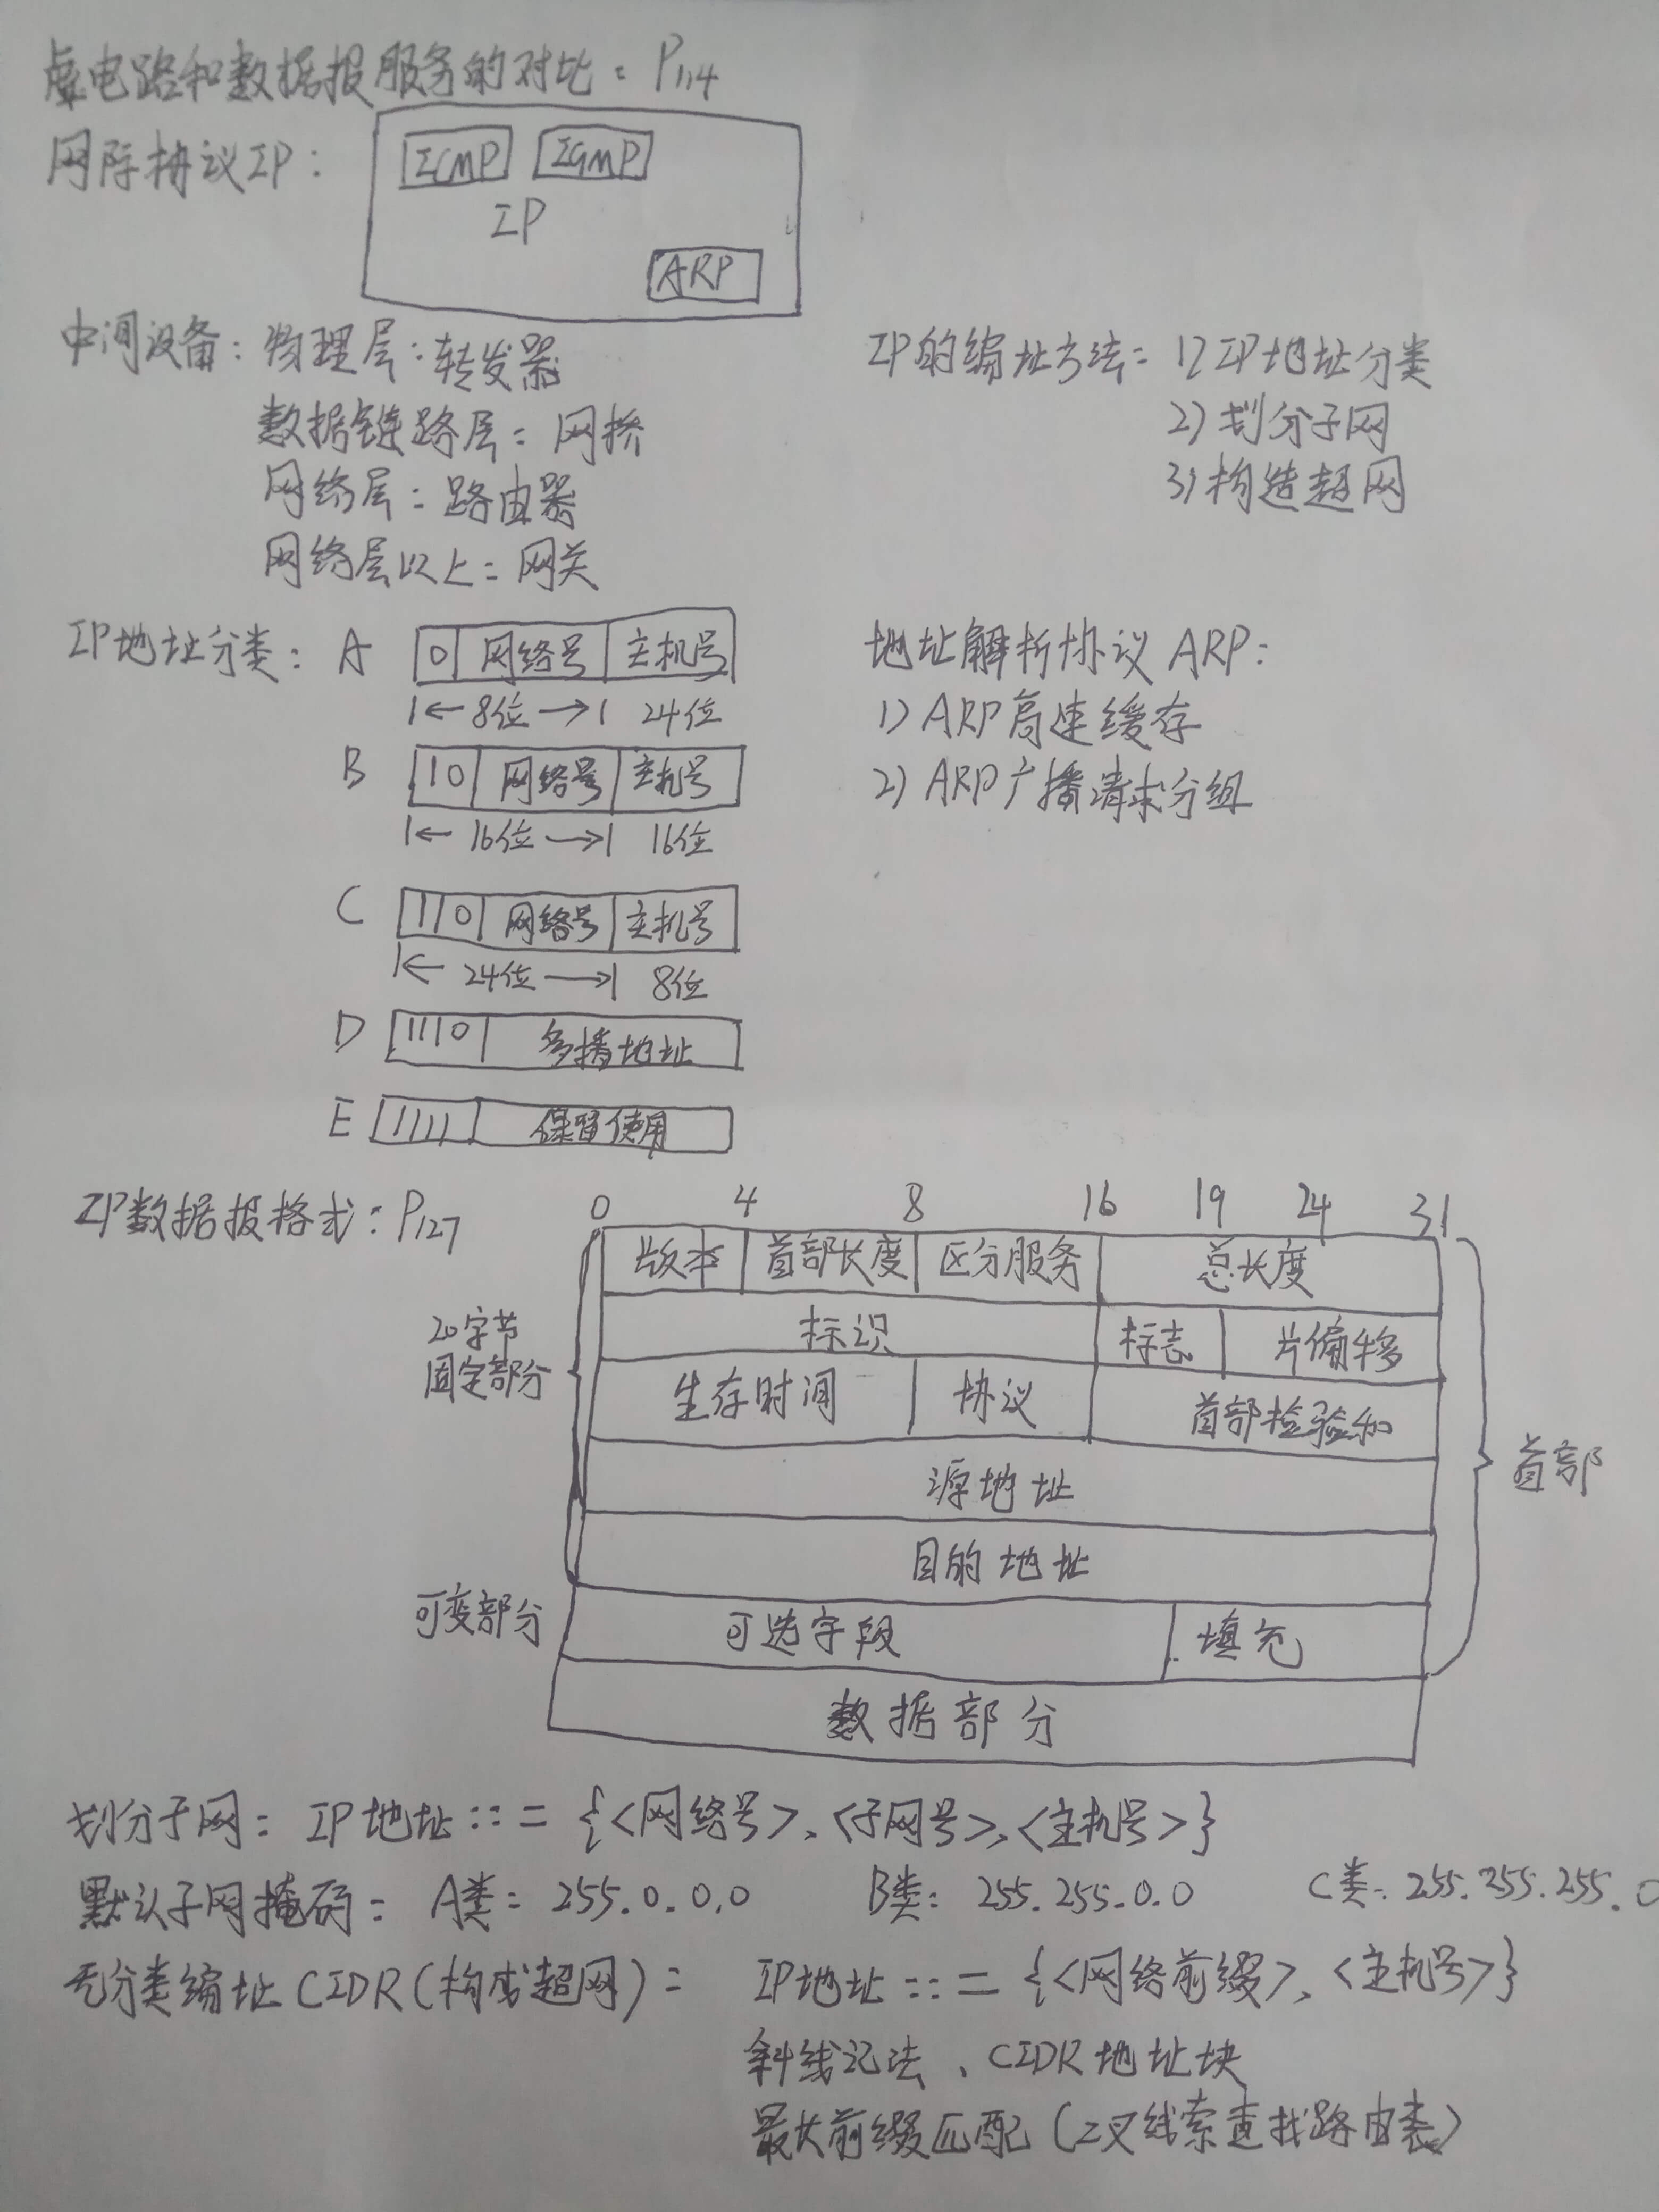 虚电路和数据报服务的对比：P114
网际协议IP：
ICMP IGMP
IP
ARP
中间设备：物理层：转发器
数据链路层：网桥
网络层：路由器
网络层以上：网关
IP的编址方法：1）IP地址分类
2）划分子网
3）构造超网
IP地址分类：A 0 网络号 主机号
8位 24位
B 10 网络号 主机号
16位 16位
C 110 网络号 主机号
24位 8位
D 1110 多播地址
E 1111 保留使用
地址解析协议ARP：
1）ARP高速缓存
2）ARP广播请求分组
IP数据报格式：P127
0 4 8 16 19 24 31
版本 首部长度 区分服务 总长度
标识 标志 片偏移
生存时间 协议 首部检验和
源地址
目的地址
可选字段 填充
数据部分
20字节
固定部分
可变部分
首部
划分子网：IP地址::={<网络号>、<子网号>、<主机号>}
默认子网掩码：A类：255.0.0.0 B类：255.255.0.0 C类：255.255.255.0
无分类编址CIDR(构成超网)：IP地址::={<网络前缀>、<主机号>}
斜线记法、CIDR地址块
最大前缀匹配(二叉线索查找路由表)